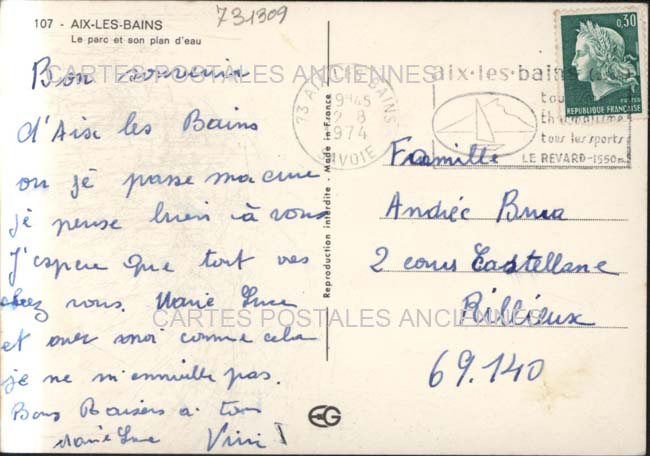 731309
107 - AIX-LES-BAINS
Le parc et son plan d'eau
CARTES POSTALES ANCIENNES
Bon souvenir
d'Aix les Bains
ou je passe ma cure
je pense bien à vous
J'espere que tout vas
chez vous. Marie Luce
et avec moi comme cela
je ne m'ennuille pas.
Bons Baisers a tous
Marie Luce
CARTES POSTALES ANCIENNES
Reproduction interdite - Made in France
EG
73 AIX-LES-BAINS
9H45
2-8
1974
SAVOIE
aix·les·bains
tou
thermalisme
tous les sports
LE REVARD-1550m
0,30
POSTES
REPUBLIQUE FRANÇAISE
Famille
Andrée Bura
2 cours Castellane
Rillieux
69.140